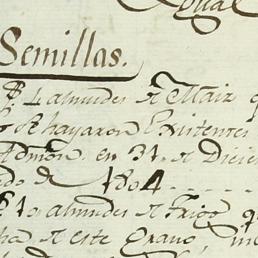 Semillas.
almudes de Maiz q
se hayaron Existentes
Admon. en 31. de Dicie
do de 1804.
almudes de Trigo q
ha de este Grano, in